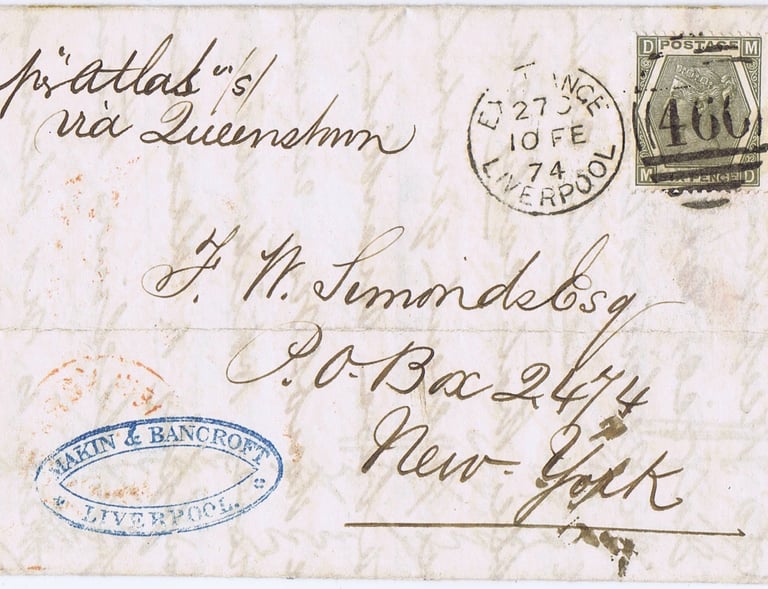 per "Atlas" s/s
via Queenstown
EXCHANGE
27 C
10 FE
74
LIVERPOOL
D POSTAGE M
466
M SIX PENCE D
F. W. Simonds Esq
P.O. Box 2474
New-York
MAKIN & BANCROFT
LIVERPOOL.